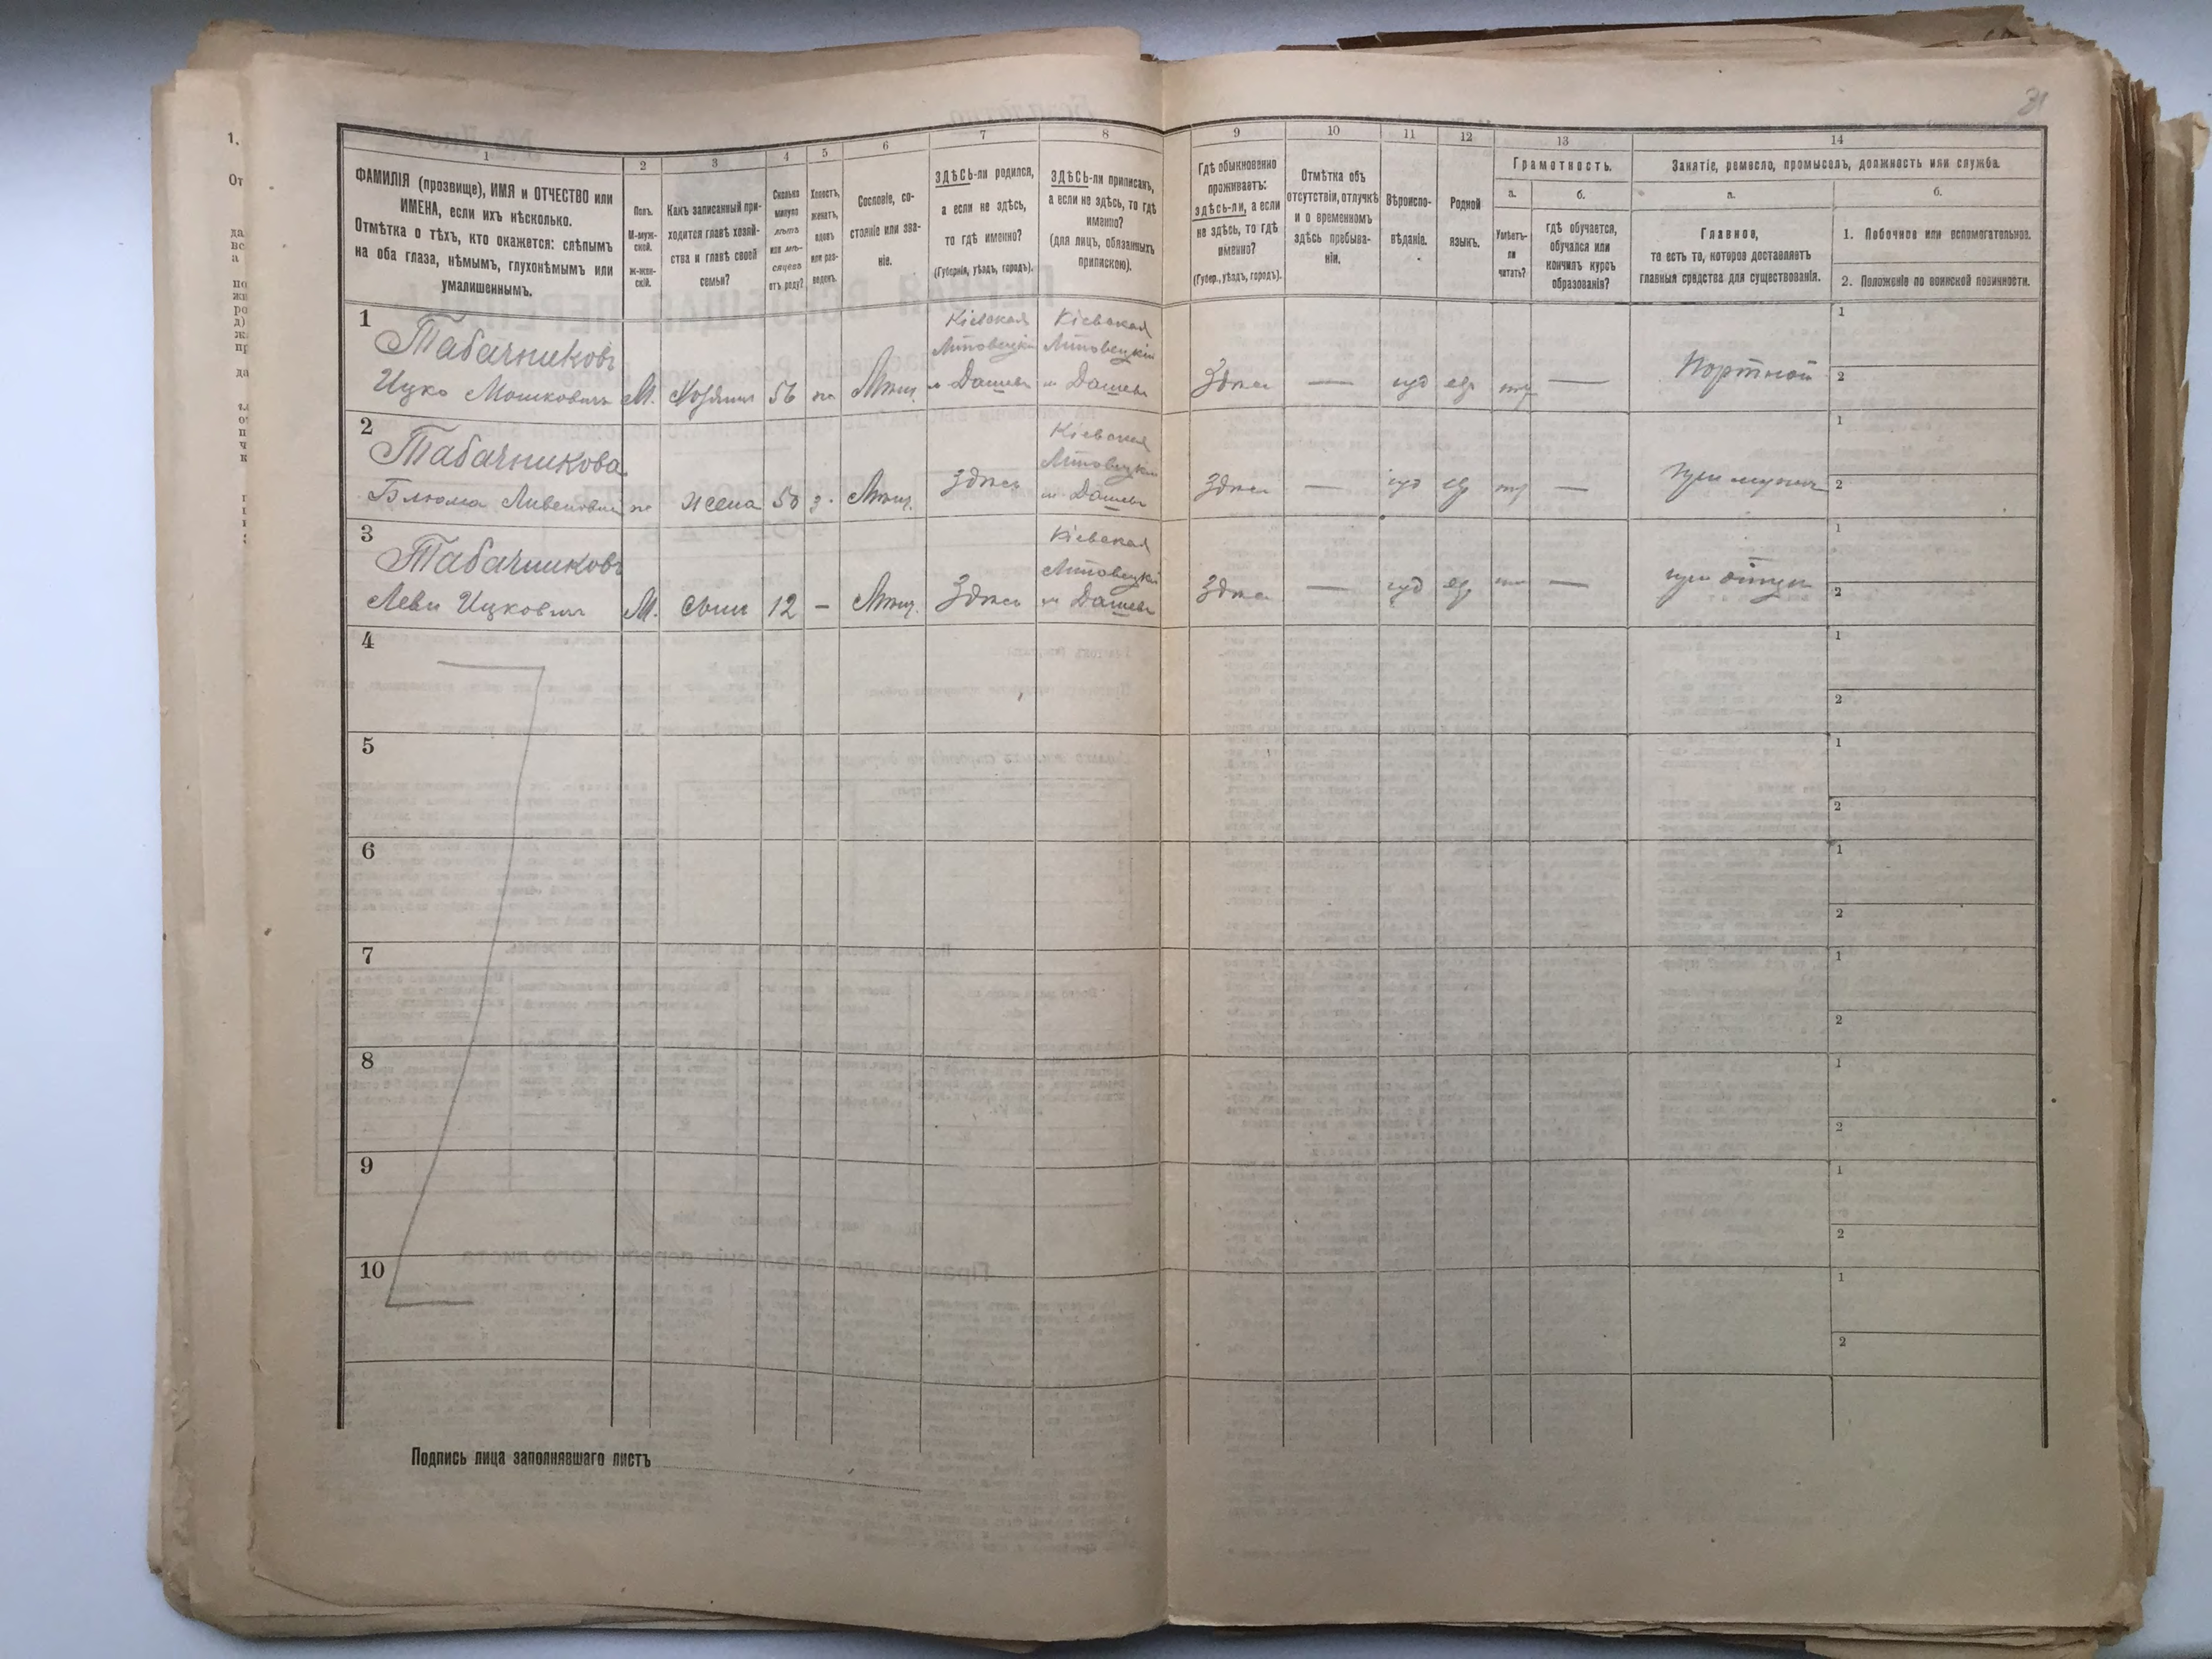 31
1
ФАМИЛІЯ (прозвище), ИМЯ и ОТЧЕСТВО или
ИМЕНА, если ихъ нѣсколько.
Отмѣтка о тѣхъ, кто окажется: слѣпымъ
на оба глаза, нѣмымъ, глухонѣмымъ или
умалишеннымъ.
2
Полъ.
М-муж-
ской.
Ж-жен-
скій.
3
Какъ записанный при-
ходится главѣ хозяй-
ства и главѣ своей
семьи?
4
Сколько
минуло
лѣтъ
или мѣ-
сяцевъ
отъ роду?
5
Холостъ,
женатъ,
вдовъ
или раз-
веденъ.
6
Сословіе, со-
стояніе или зва-
ніе.
7
ЗДѢСЬ-ли родился,
а если не здѣсь,
то гдѣ именно?
(Губернія, уѣздъ, городъ).
8
ЗДѢСЬ-ли приписанъ,
а если не здѣсь, то гдѣ
именно?
(для лицъ, обязанныхъ
припискою).
9
Гдѣ обыкновенно
проживаетъ:
здѣсь-ли, а если
не здѣсь, то гдѣ
именно?
(Губер., уѣздъ, городъ).
10
Отмѣтка объ
отсутствіи, отлучкѣ
и о временномъ
здѣсь пребыва-
ніи.
11
Вѣроиспо-
вѣданіе.
12
Родной
языкъ.
13
Грамотность.
а.
Умѣетъ-
ли
читать?
б.
гдѣ обучается,
обучался или
кончилъ курсъ
образованія?
14
Занятіе, ремесло, промыселъ, должность или служба.
а.
Главное,
то есть то, которое доставляетъ
главныя средства для существованія.
б.
1. Побочное или вспомогательное.
2. Положеніе по воинской повинности.
1
Табачниковъ
Ицко Мошковичъ
М.
Хозяинъ
56
Мѣщ.
Кіевская
Липовецкій
м Дашевъ
Кіевская
Липовецкій
м Дашевъ
Здѣсь
—
іуд
евр
—
Портной
1
2
2
Табачникова
Блюма
жена
50
Мѣщ.
Здѣсь
Кіевская
Липовецкій
м Дашевъ
Здѣсь
—
іуд
евр
—
при мужѣ
1
2
3
Табачниковъ
Леви Ицковичъ
М.
сынъ
12
—
Мѣщ.
Здѣсь
Кіевская
Липовецкій
м Дашевъ
Здѣсь
—
іуд
евр
—
при отцѣ
1
2
4
1
2
5
1
2
6
1
2
7
1
2
8
1
2
9
1
2
10
1
2
Подпись лица заполнявшаго листъ